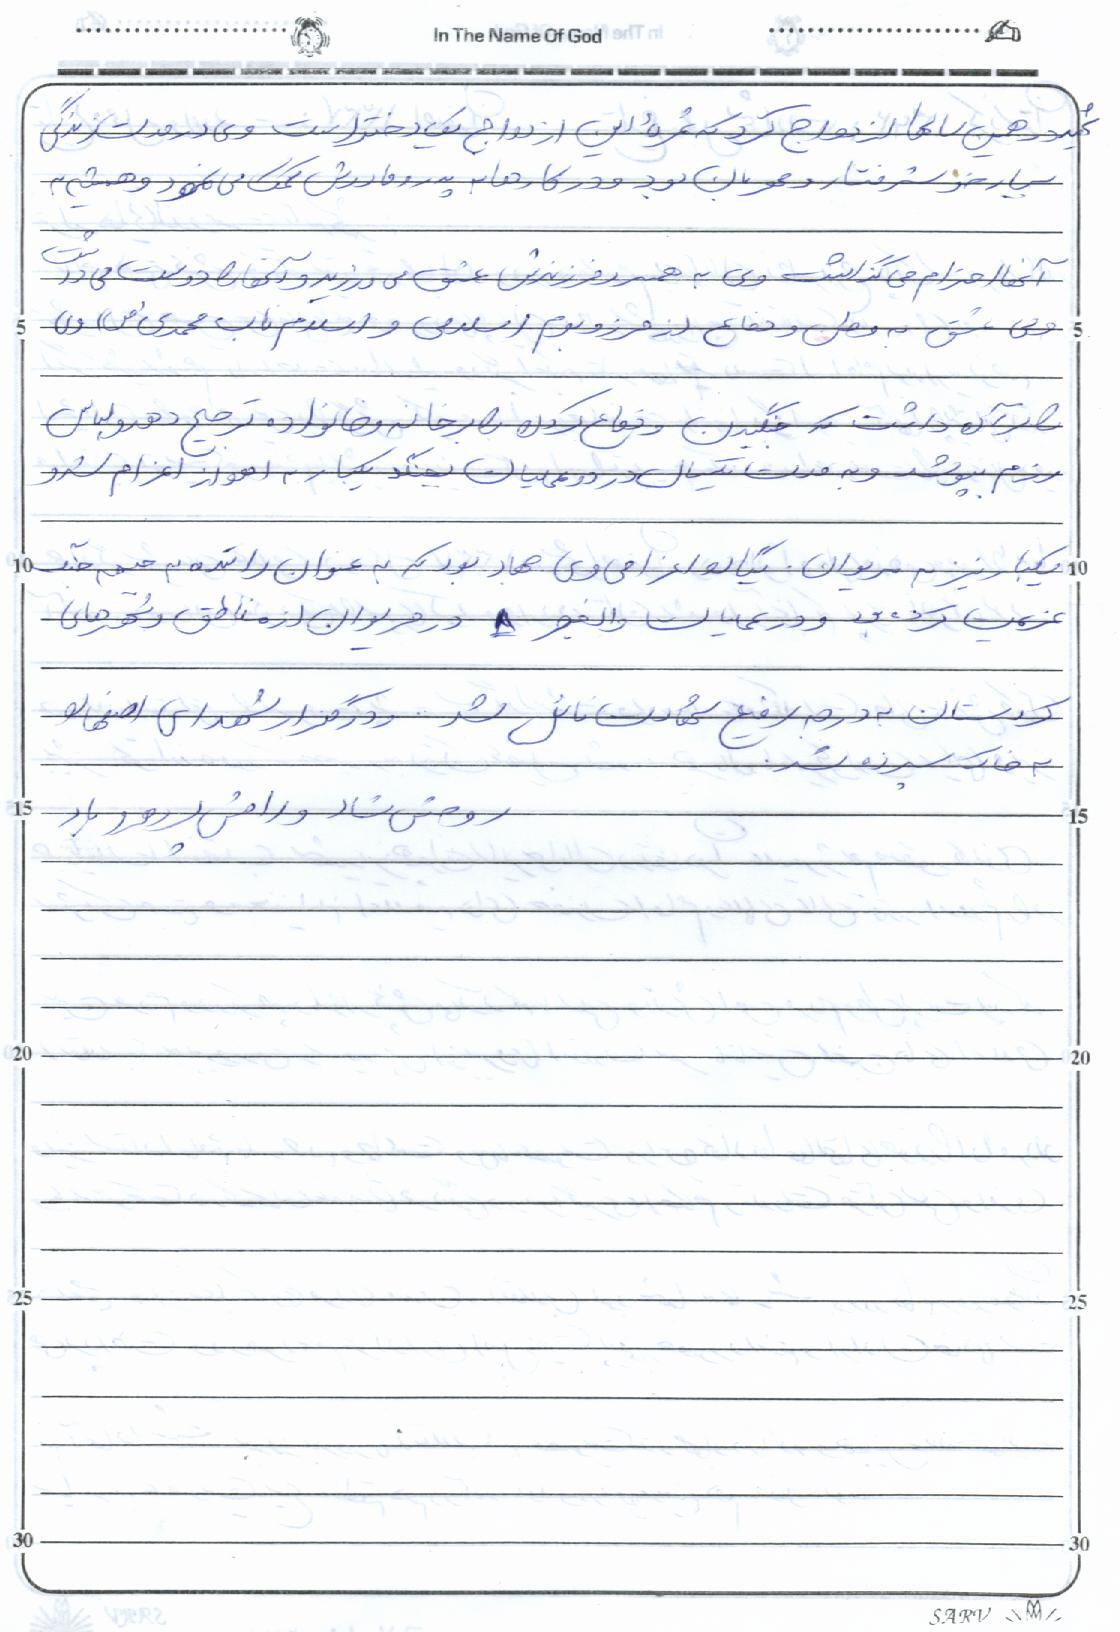 In The Name Of God
در همین سالها ازدواج کرد که ثمرهٔ این ازدواج یک دختر است وی در مدت زندگی
بسیار خوشرفتار و مهربان بود و در کارها به پدر و مادرش کمک می نمود و همیشه به
آنها احترام می گذاشت وی به همسر و فرزندش عشق می ورزید و آنها را دوست می داشت
5 ولی عشق به وطن و دفاع از مرز و بوم اسلامی و اسلام ناب محمدی (ص) وی 5
را بر آن داشت که جنگیدن و دفاع کردن را بر خانه و خانواده ترجیح دهد و لباس
رزم بپوشد و به مدت یکسال در دو عملیات بجنگد یکبار به اهواز اعزام شد و
10 یکبار نیز به مریوان. یگان اعزامی وی جهاد بود که به عنوان راننده به جبهه جنگ 10
عزیمت کرده بود و در عملیات والفجر ۸ در مریوان از مناطق و شهرهای
کردستان به درجه رفیع شهادت نائل شد. و در گلزار شهدای اصفهان
به خاک سپرده شد.
15 روحش شاد و راهش پر رهرو باد 15
20 20
25 25
30 30
SARV